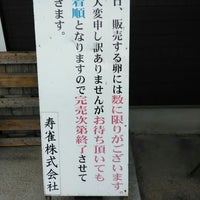 日、販売する卵には数に限りがございます。
大変申し訳ありませんがお待ち頂いても
着順となりますので完売次第終了させて
きます。
寿雀株式会社